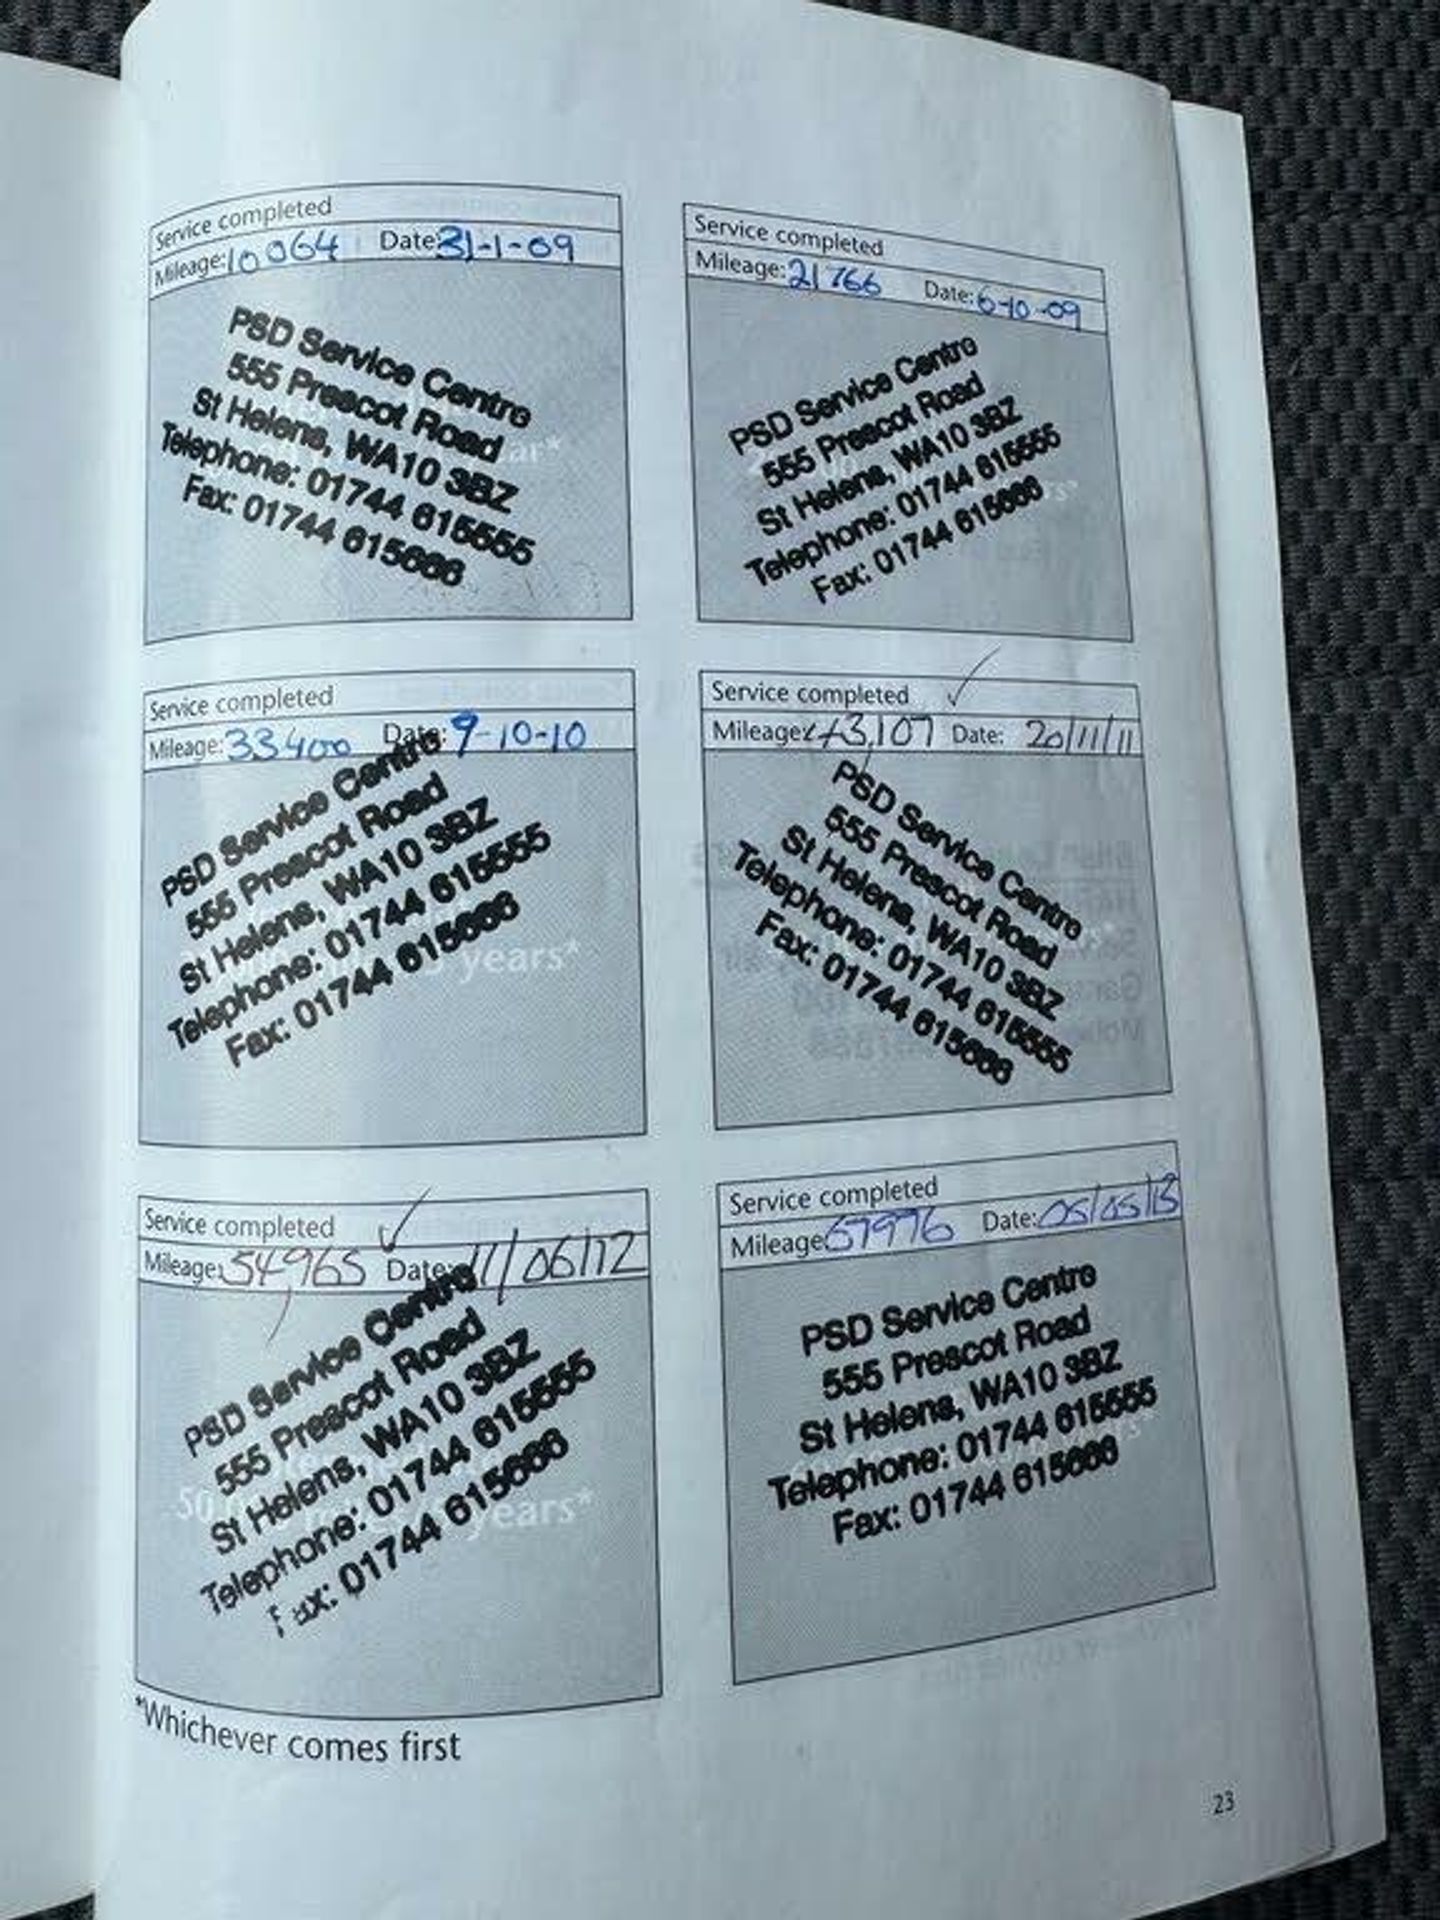 Service completed
Mileage: 10064 Date: 31-1-09
PSD Service Centre
555 Prescot Road
St Helens, WA10 3BZ
Telephone: 01744 615555
Fax: 01744 615666
Service completed
Mileage: 21766 Date: 6-10-09
PSD Service Centre
555 Prescot Road
St Helens, WA10 3BZ
Telephone: 01744 615555
Fax: 01744 615666
Service completed
Mileage: 33400 Date: 9-10-10
PSD Service Centre
555 Prescot Road
St Helens, WA10 3BZ
Telephone: 01744 615555
Fax: 01744 615666
years*
Service completed
Mileage: 43,107 Date: 20/11/11
PSD Service Centre
555 Prescot Road
St Helens, WA10 3BZ
Telephone: 01744 615555
Fax: 01744 615666
Service completed
Mileage: 54,965 Date: 11/06/12
PSD Service Centre
555 Prescot Road
St Helens, WA10 3BZ
Telephone: 01744 615555
Fax: 01744 615666
years*
Service completed
Mileage: 67976 Date: 05/05/13
PSD Service Centre
555 Prescot Road
St Helens, WA10 3BZ
Telephone: 01744 615555
Fax: 01744 615666
*Whichever comes first
23